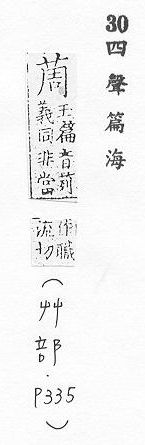 30四聲篇海
玉篇音
義同非當
作職
流切
（艸部．P335）